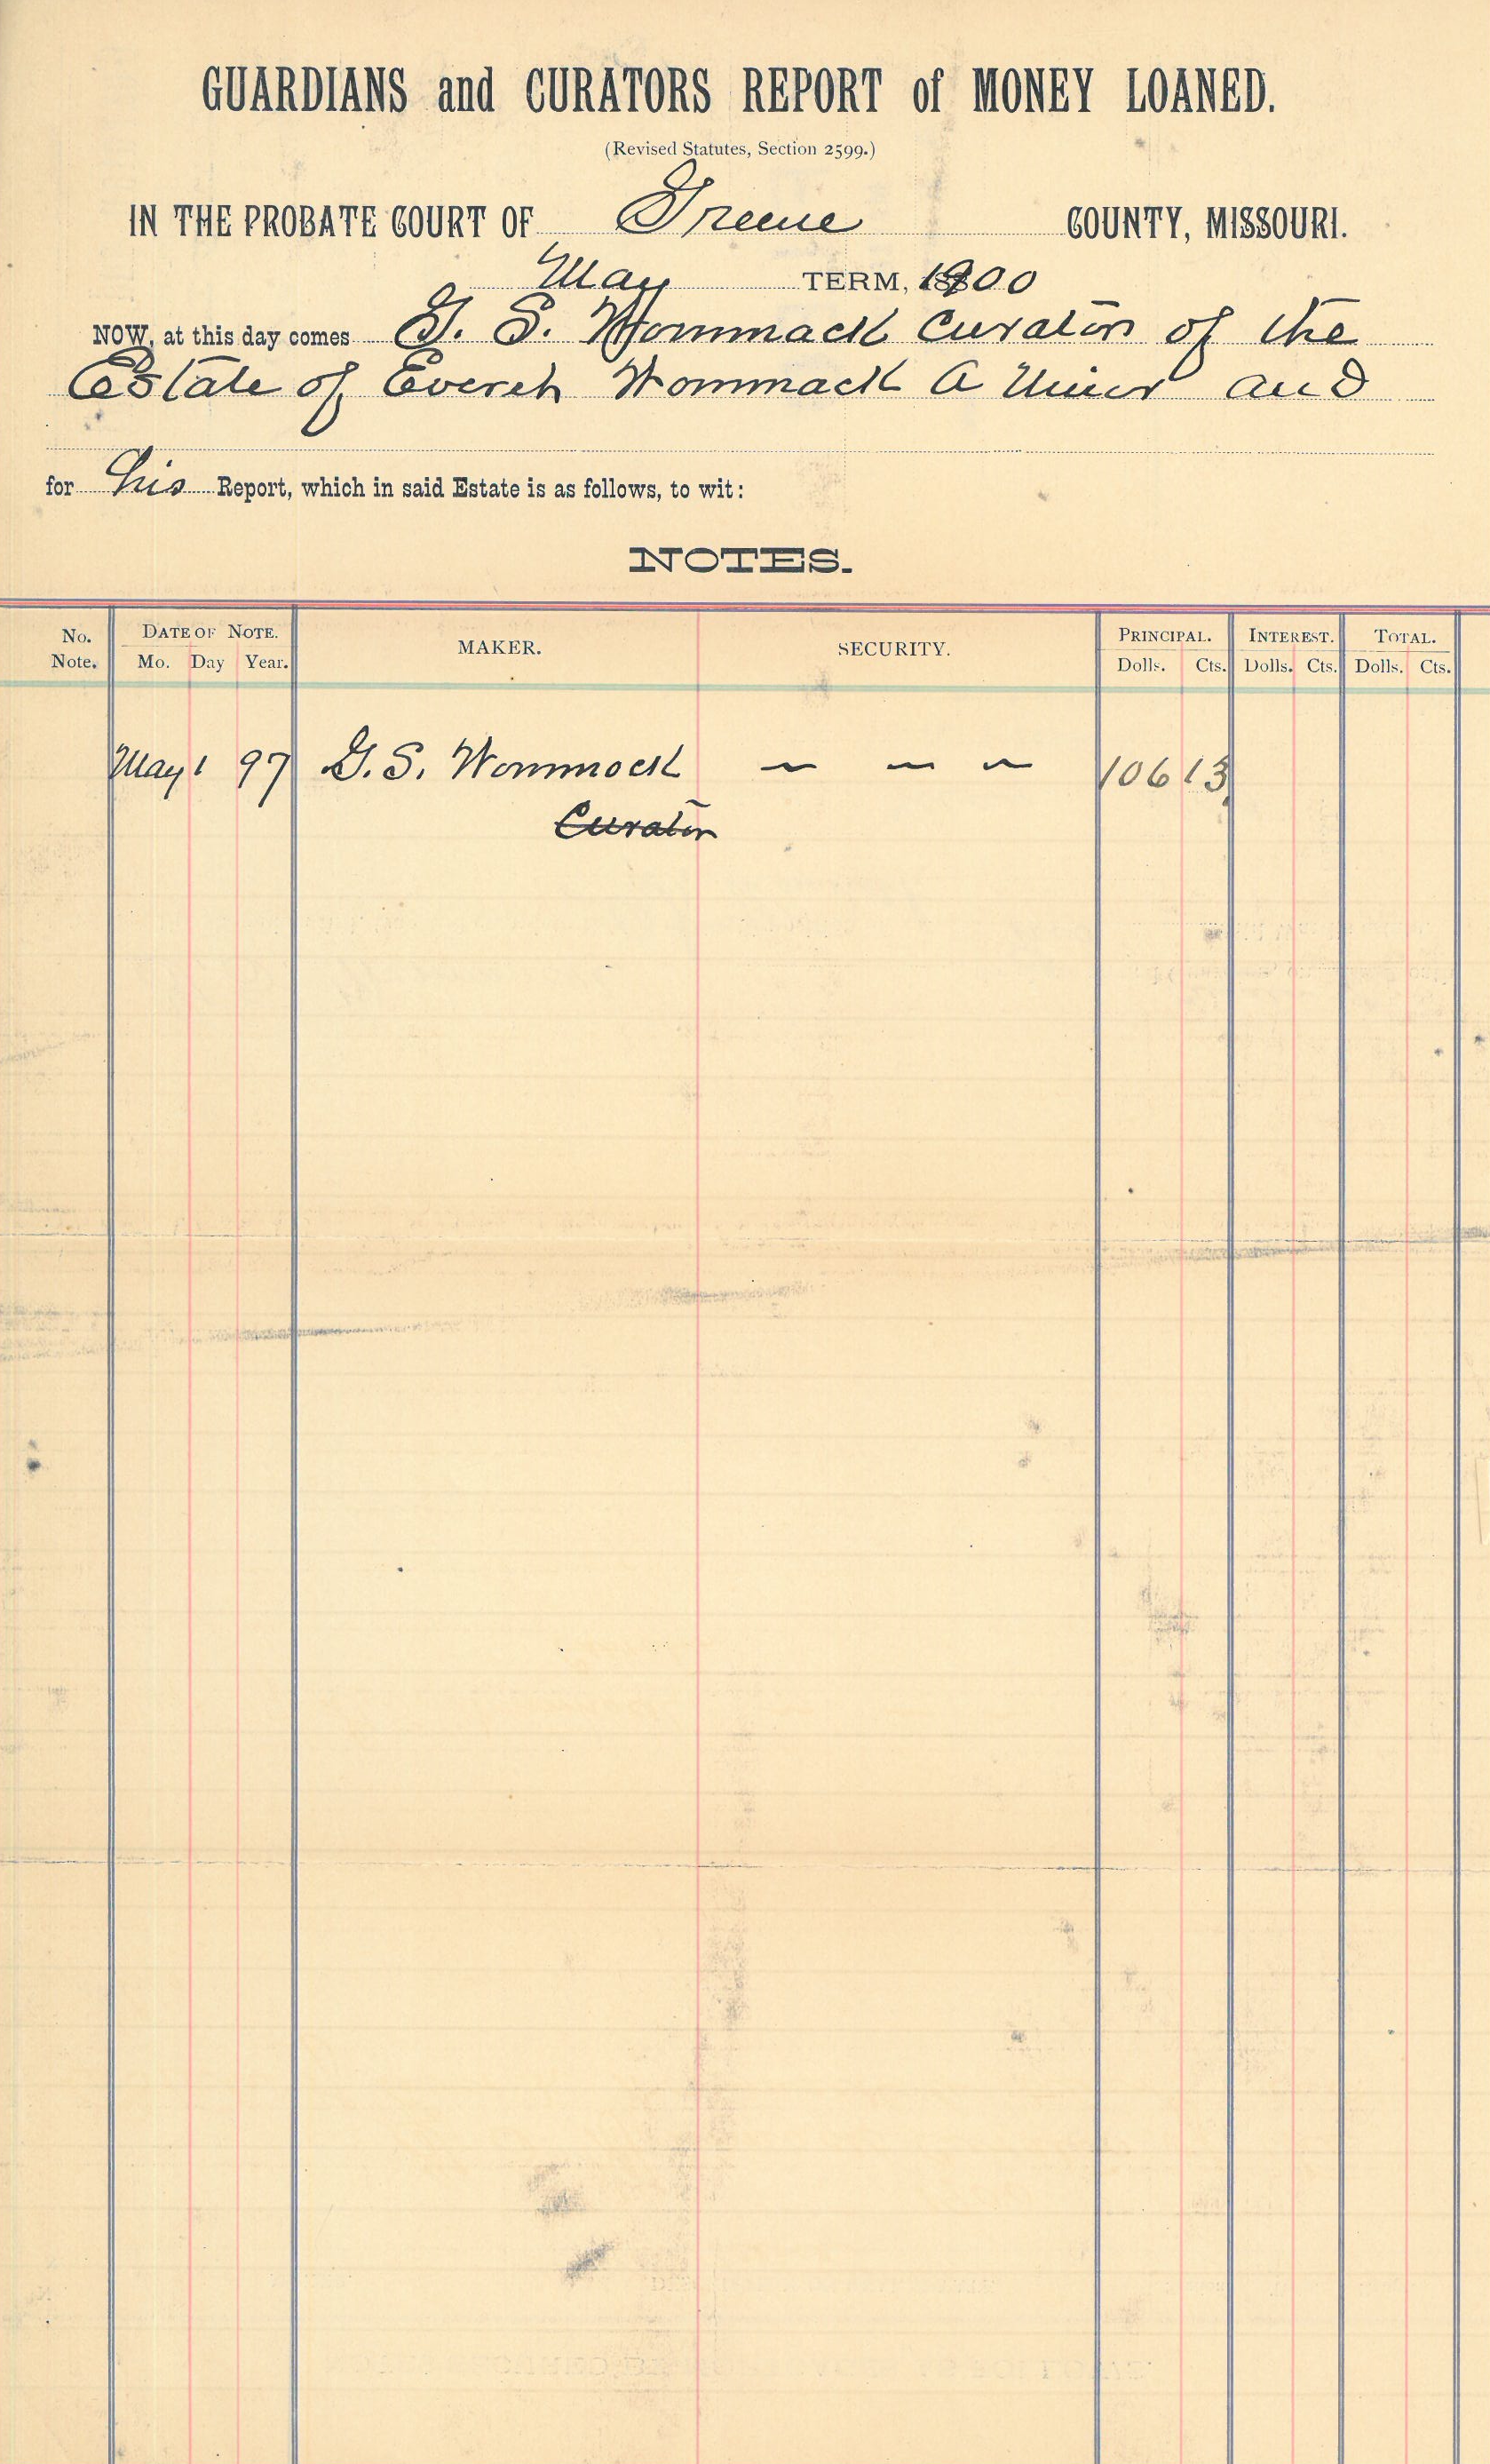 GUARDIANS and CURATORS REPORT of MONEY LOANED.
(Revised Statutes, Section 2599.)
IN THE PROBATE COURT OF Greene COUNTY, MISSOURI.
May TERM, 1900
NOW, at this day comes G. S. Wommack Curator of the
Estate of Everett Wommack a Minor and
for his Report, which in said Estate is as follows, to wit:
NOTES.
No. Note. DATE OF NOTE. Mo. Day Year. MAKER. SECURITY. PRINCIPAL. Dolls. Cts. INTEREST. Dolls. Cts. TOTAL. Dolls. Cts.
May 1 97 G. S. Wommack — — — 106 13
Curator